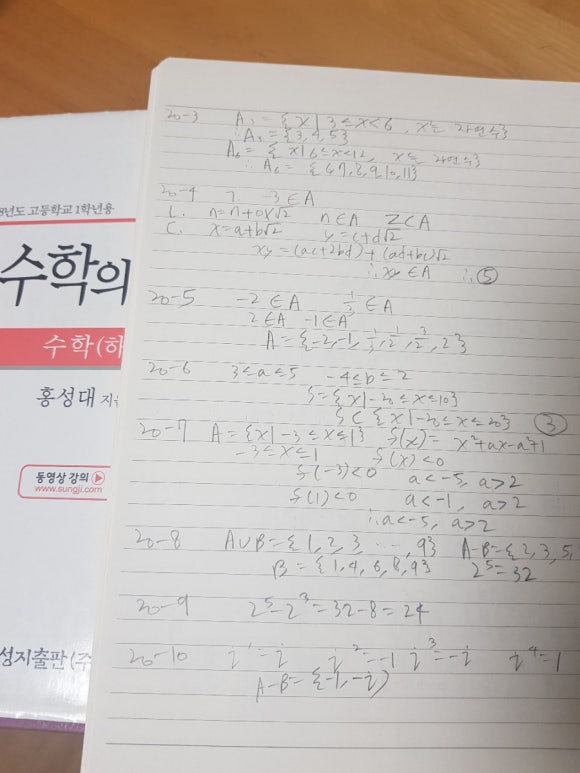 8년도 고등학교 1학년용
수학의
수학(하
홍성대 지
동영상 강의
www.sungji.com
성지출판(주
20-3 A₃ = {x | 3≤x<6, x는 자연수}
∴ A₃ = {3,4,5}
A₆ = {x | 6≤x<12, x는 자연수}
∴ A₆ = {6,7,8,9,10,11}
20-4 ㄱ. -3∈A
ㄴ. n=n+0×√2 n∈A Z⊂A
ㄷ. x=a+b√2 y=c+d√2
xy=(ac+2bd)+(ad+bc)√2
∴ xy∈A ∴ ⑤
20-5 -2∈A 1/3∈A
2∈A -1∈A
A={-2,-1,1/3,1/2,3/2,2}
20-6 3≤a≤5 -4≤b≤2
S={x|-20≤x≤10}
S⊂{x|-20≤x≤20} ③
20-7 A={x|-3≤x≤1} f(x)=x²+ax-a²+1
-3≤x≤1 f(x)<0
f(-3)<0 a<-5, a>2
f(1)<0 a<-1, a>2
∴ a<-5, a>2
20-8 A∪B={1,2,3 ⋯, 9} A-B={2,3,5,
B={1,4,6,8,9} 2⁵=32
20-9 2⁵-2³=32-8=24
20-10 i¹=i i²=-1 i³=-i i⁴=1
A-B={-1,-i}